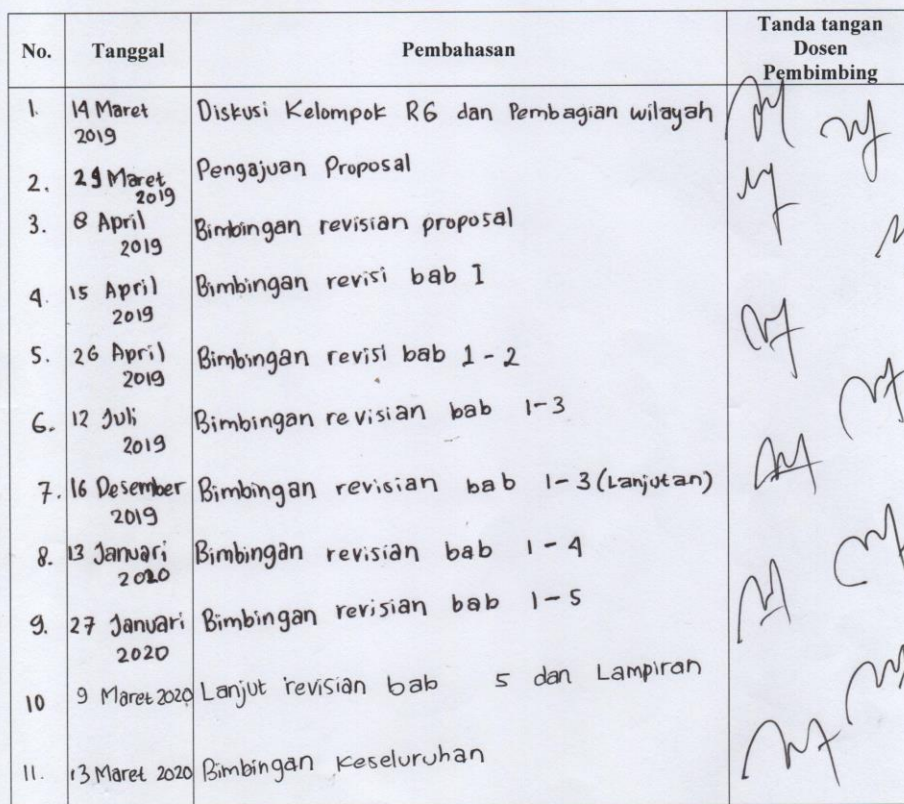 No. Tanggal Pembahasan Tanda tangan
Dosen
Pembimbing
1. 14 Maret Diskusi Kelompok RG dan Pembagian wilayah
2019
2. 29 Maret Pengajuan Proposal
2019
3. 8 April Bimbingan revisian proposal
2019
4. 15 April Bimbingan revisi bab I
2019
5. 26 April Bimbingan revisi bab 1-2
2019
6. 12 Juli Bimbingan revisian bab 1-3
2019
7. 16 Desember Bimbingan revisian bab 1-3 (Lanjutan)
2019
8. 13 Januari Bimbingan revisian bab 1-4
2020
9. 27 Januari Bimbingan revisian bab 1-5
2020
10 9 Maret 2020 Lanjut revisian bab 5 dan Lampiran
11. 13 Maret 2020 Bimbingan Keseluruhan